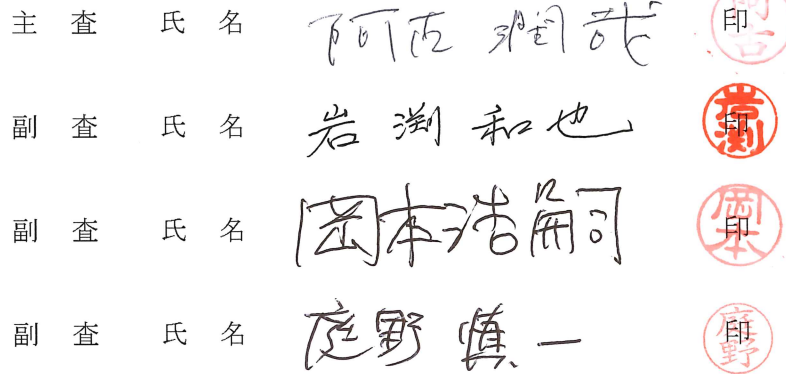 主査 氏名 阿古 潤哉 印
副査 氏名 岩渕 和也 印
副査 氏名 岡本浩嗣 印
副査 氏名 庭野 慎一 印